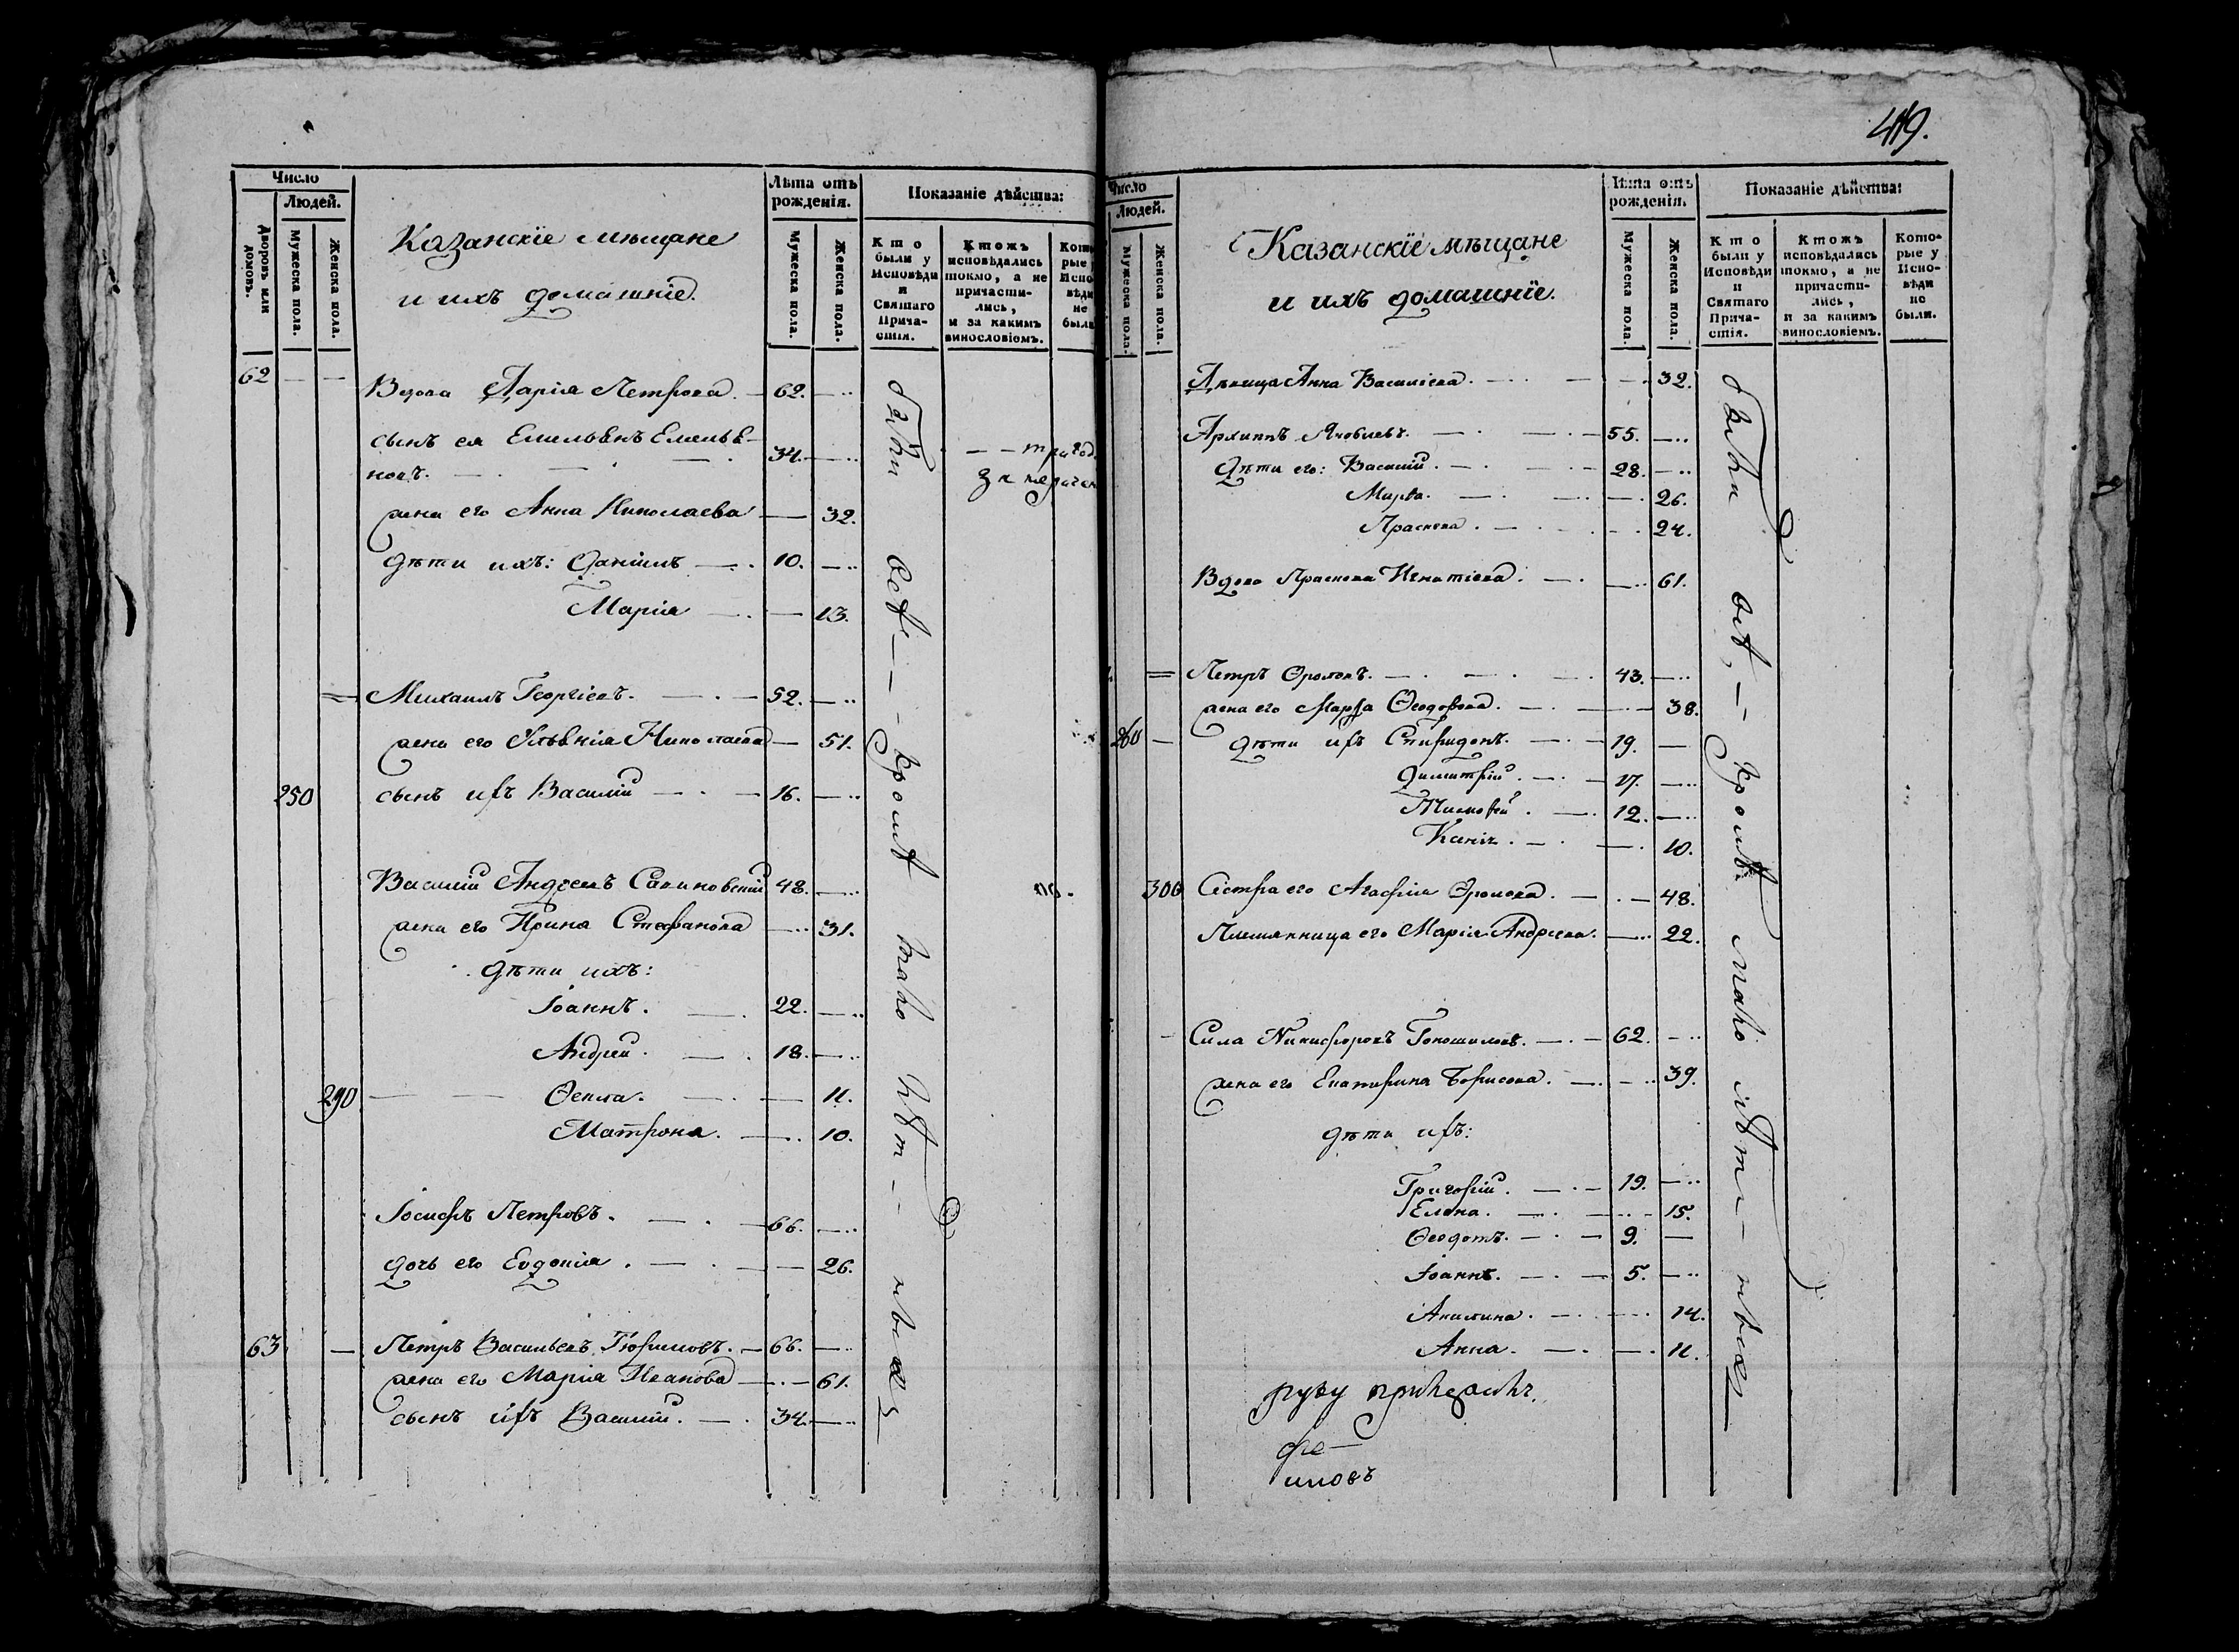 Число
Людей.
Дворовъ или домовъ.
Мужеска пола.
Женска пола.
Казанскїе мѣщане
и ихъ домашнїе.
Лѣта отъ рожденія.
Мужеска пола.
Женска пола.
Показаніе дѣйства:
Кто были у Исповѣди и Святаго Причастія.
Ктожъ исповѣдались токмо, а не причастились, и за какимъ винословіемъ.
Которые у Исповѣди не были
62 — — Вдова Дарія Петрова — 62. — ..
сынъ ея Емельянъ Емелья-
новъ. — 34. — ..
жена его Анна Николаева — 32.
дѣти ихъ: Даніилъ — 10. — ..
Марія — 13.
= Михаилъ Георгіевъ. — 52. — ..
жена его Николаева — 51.
250 сынъ ихъ Василій — 16. — ..
Василій Андреевъ 48. — ..
жена его Ирина Стефанова — 31.
дѣти ихъ:
Іоаннъ. — 22. — ..
Андрей. — 18. — ..
290 — — Ѳекла. — 11.
Матрона. — 10.
Іосифъ Петровъ. — 66. — ..
дочь его Евдокія. — 26.
63 — Петръ Васильевъ — 66. — ..
жена его Марія Иванова — 61.
сынъ ихъ Василій. — 34. — ..
были всѣ — кромѣ
419.
Число
Людей.
Мужеска пола.
Женска пола.
Казанскїе мѣщане
и ихъ домашнїе.
Лѣта отъ рожденія.
Мужеска пола.
Женска пола.
Показаніе дѣйства:
Кто были у Исповѣди и Святаго Причастія.
Ктожъ исповѣдались токмо, а не причастились, и за какимъ винословіемъ.
Которые у Исповѣди не были.
Дѣвица Анна Василіева. — 32.
Архипъ Яковлевъ. — 55. — ..
дѣти его: Василій. — 28. — ..
Марѳа. — 26.
Праскева. — 24.
Вдова Праскева Игнатіева. — 61.
= Петръ Фроловъ. — 43. — ..
жена его Марѳа Ѳеодорова. — 38.
260 — дѣти ихъ Спиридонъ. — 19. —
Димитрій. — 17. — ..
Тимоѳей. — 12. — ..
10.
300 Сестра его Агафія Фролова. — 48.
Племянница его Марія Андреева. — 22.
Сила Никифоровъ — 62. — ..
жена его Екатерина Борисова. — 39.
дѣти ихъ:
Григорій. — 19. — ..
Елена. — 15.
Ѳеодотъ. — 9. —
Іоаннъ. — 5. — ..
Акилина. — 14.
Анна. — 11.
были всѣ, — кромѣ
руку приложилъ